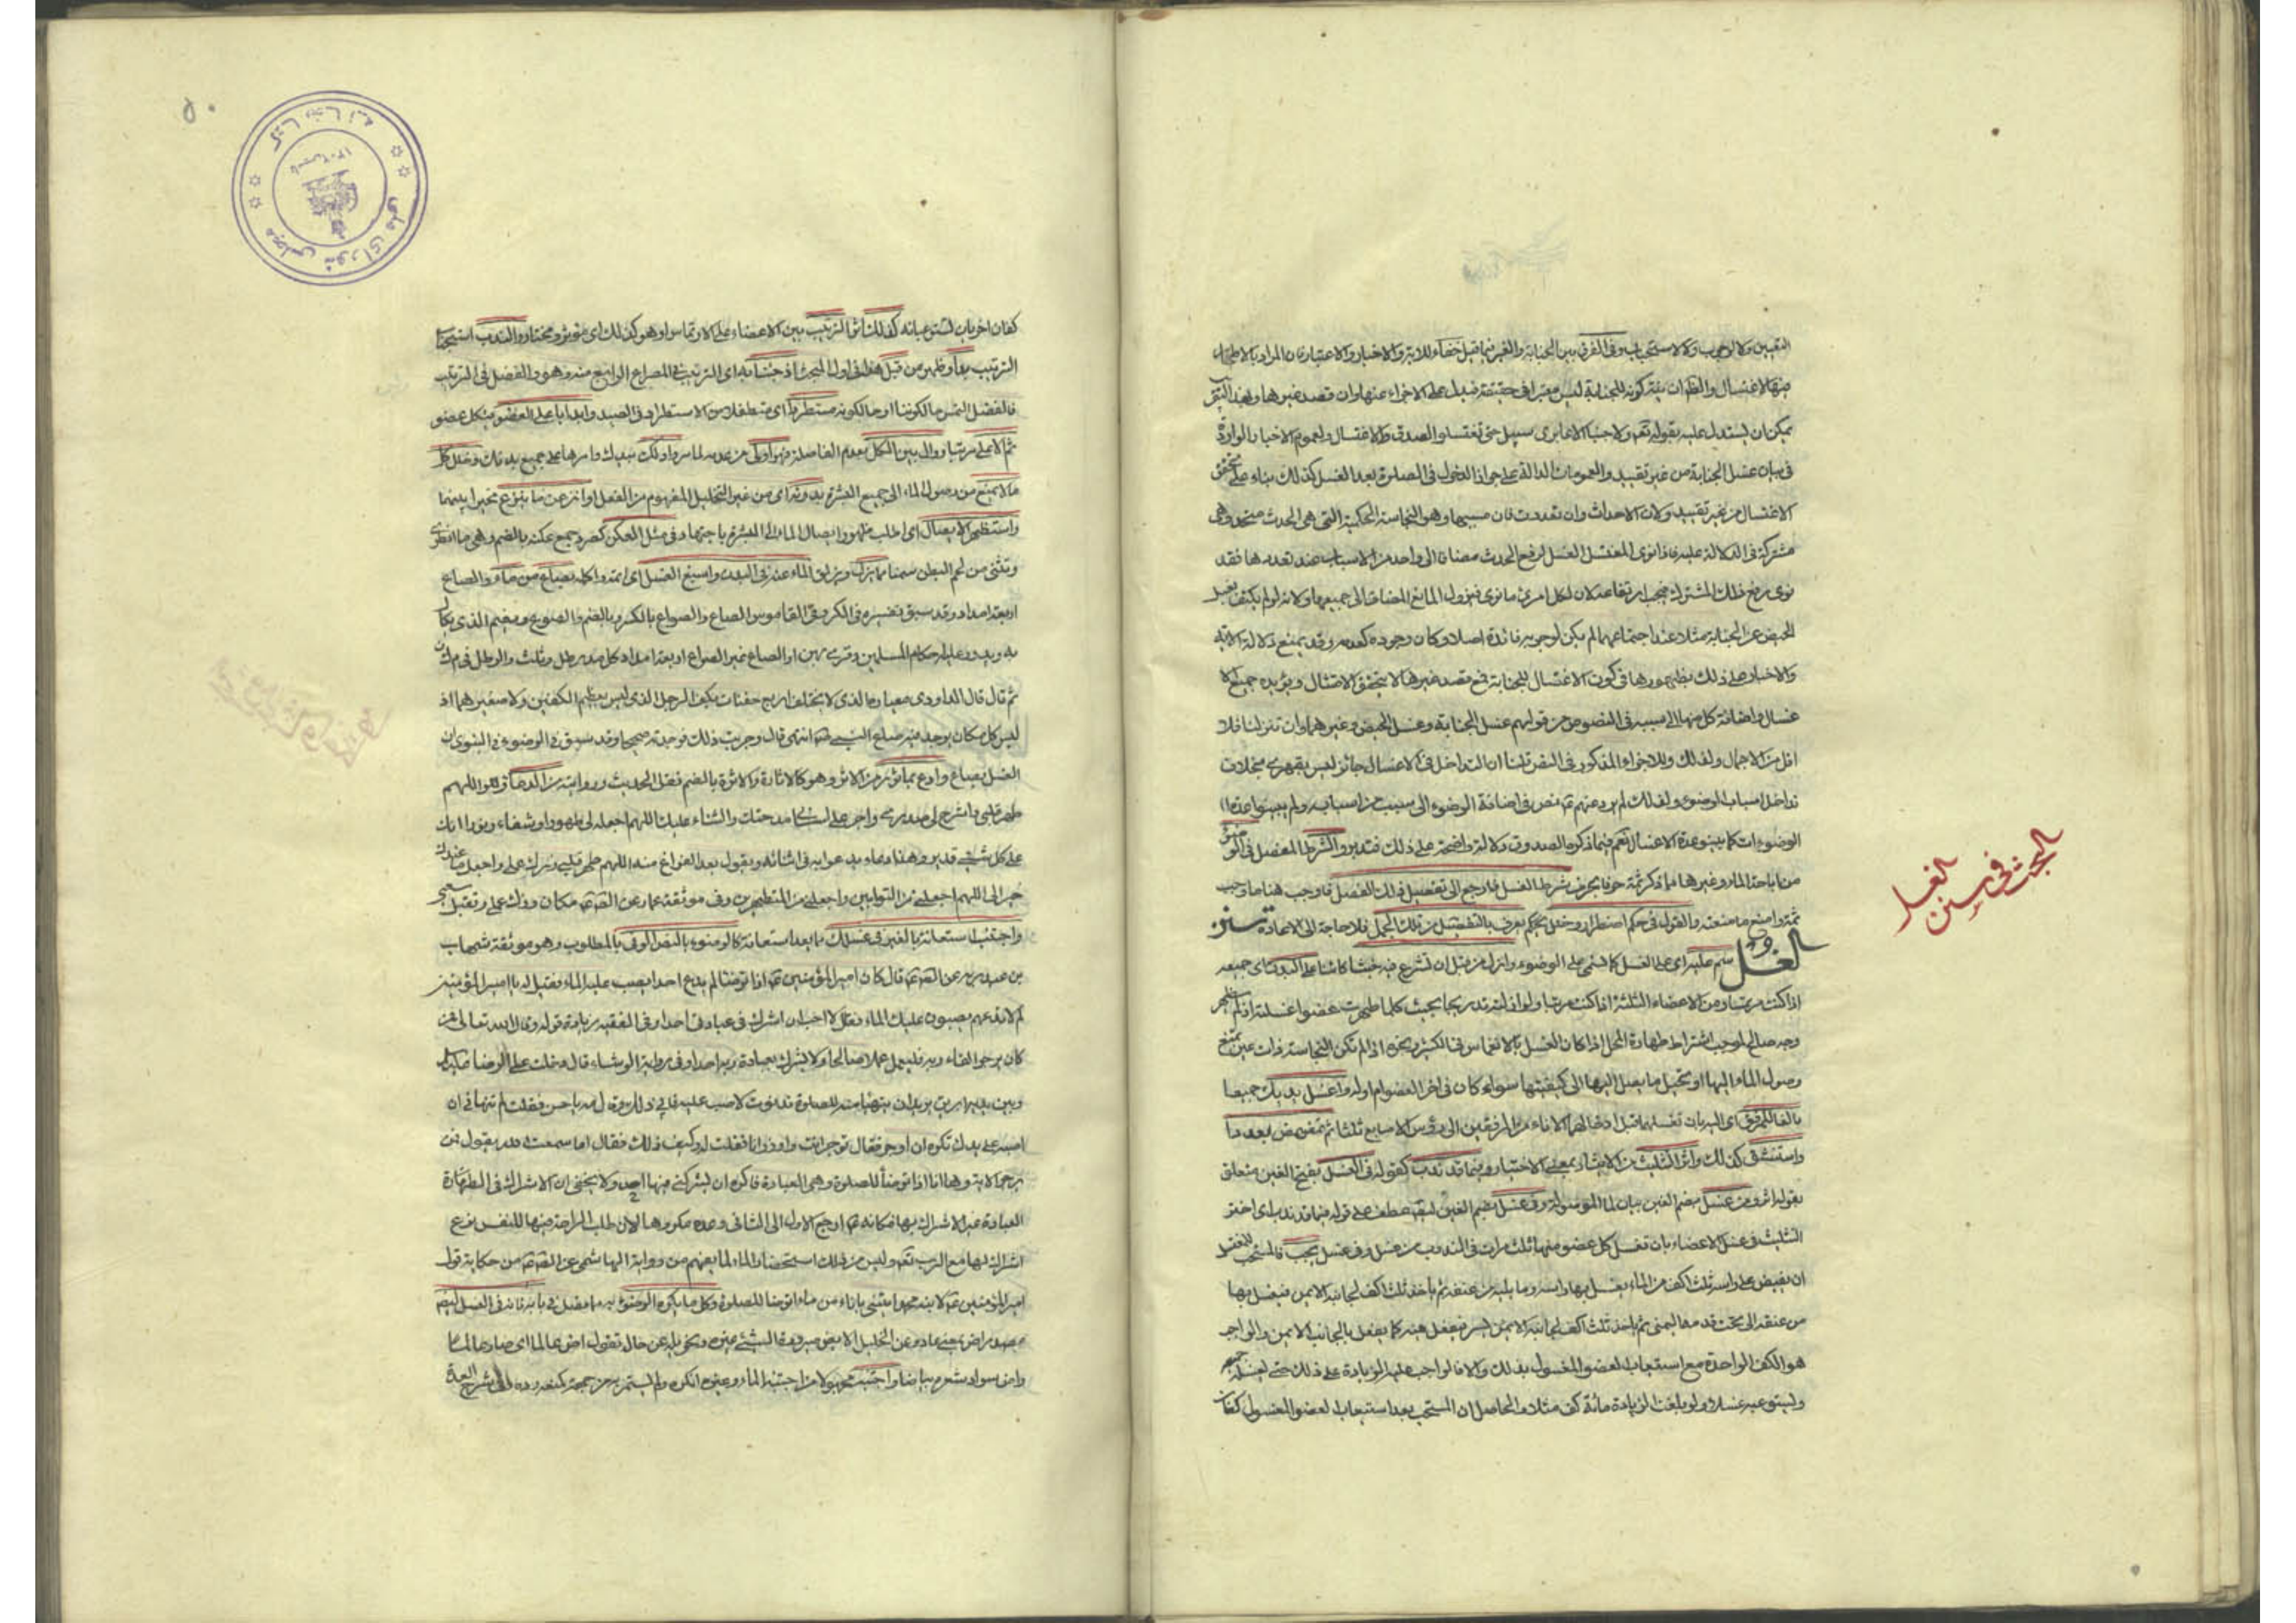 التعيين ولا الوجوب ولا الاستحباب وفي الفرق بين الجنابة والغير فيما قبل خفاء للاية والاخبار والاعتبار فان المراد بالاطهار
فيها الاغتسال والظ ان نية كونه للجنابة ليس معتبرا في حقيقته فيدل على الاجزاء عنها وان قصد غيرها وبهذا التقريب
يمكن ان يستدل عليه بقوله تعالى ولا جنبا الا عابري سبيل حتى تغتسلوا لصدق الاغتسال ولعموم الاخبار الواردة
في بيان غسل الجنابة من غير تقييد والعمومات الدالة على جواز الدخول في الصلوة بعد الغسل كذلك بناء على تحقق
الاغتسال من غير تقييد ولان الاحداث وان تعددت فان مسببها وهو النجاسة الحكمية التي هي الحدث متحد وهي
مشتركة في الدلالة عليه فاذا نوى المغتسل الغسل لرفع الحدث مضافا الى واحد من الاسباب عند تعددها فقد
نوى رفع ذلك المشترك فيجب ارتفاعه لان لكل امرئ ما نوى فيزول المانع المضاف الى جميعها ولانه لو لم يكتف بغسل
الحيض عن الجنابة مثلا عند اجتماعهما لم يكن لوجوبه فائدة اصلا وكان وجوده كعدمه وقد يمنع دلالة الاية
والاخبار على ذلك بظهورها في كون الاغتسال للجنابة فمع قصد غيرها لا يتحقق الامتثال ويؤيده جميع الا
غسال واضافة كل منها الى مسببه في النصوص من قولهم غسل الجنابة وغسل الحيض وغيرهما وان تنزلنا فلا
اقل من الاجمال ولذلك وللاجزاء المذكور في النص قلنا ان التداخل في الاغسال جائز ليس بقهري بخلاف
تداخل اسباب الوضوء ولذلك لم يرد عنهم ع نص في اضافة الوضوء الى سبب من اسبابه ولم يبينوا عدد
الوضوءات كما بينوا عدة الاغسال نعم فيما ذكره الصدوق دلالة واضحة على ذلك فتدبر والشرط المفصل في الوضوء
من اباحة الماء وغيرها مما ذكر ثمة حرفا بحرف شرط الغسل فارجع الى تفصيل ذلك الفصل فاوجب هنا ما وجب
ثمة وامنع ما منعته والقول في حكم اضطرار وخلل بحكم يعرف بالتفصيل من تلك الجمل فلا حاجة الى الاعادة سنن
الغسل وسم عليه اي على الغسل كما تسمي على الوضوء وازل من قبل ان تشرع فيه خبثا كائنا على البدن اي جميعه
اذا كنت مرتمسا ومن الاعضاء الثلثة اذا كنت مرتبا ولو ازلته تدريجا بحيث كلما طهرت عضوا غسلته اذ لم يظهر
وجه صالح لوجوب اشتراط طهارة المحل اذا كان الغسل بالانغماس في الكثير ونحوه اذا لم تكن النجاسة ذات عين تمنع
وصول الماء اليها او تحيل ما يصل اليها الى كيفيتها سواء كان في اخر العضو ام اوله واغسل يديك جميعا
بالغا المرفق اي اليدين بان تغسلهما قبل ادخالهما الاناء من المرفقين الى رؤس الاصابع ثلثا ثم تمضمض بعد ما
واستنشق كذلك واثر التثليث من الايثار بمعنى الاختيار فيما قد ندب كقوله في الغسل بفتح الغين متعلق
بقوله اثر ومن غسل بضم الغين بيان لما الموصولة وفي غسل بضم الغين ايضا عطف على قوله فيما قد ندب اي اختر
التثليث في غسل الاعضاء بان تغسل كل عضو منها ثلث مرات في المندوب من غسل وفي غسل يجب فالمستحب للمغتسل
ان يفيض على راسه ثلث اكف من الماء يغسل بها راسه وما يليه من عنقه ثم ياخذ ثلث اكف لجانبه الايمن فيغسل بها
من عنقه الى تحت قدمه اليمنى ثم ياخذ ثلث اكف لجانبه الايسر فيفعل فيه كما يفعل بالجانب الايمن والواجب
هو الكف الواحدة مع استيعاب العضو المغسول بذلك والا فالواجب عليه الزيادة على ذلك حتى يغسله جميعه
ويستوعبه غسلا ولو بلغت الزيادة مائة كف مثلا والحاصل ان المستحب بعد استيعاب العضو المغسول كفان
البحث في سنن الغسل
٥٠
كتابخانه مجلس شورای ملی
كفان اخريان تستوعبانه كذلك اثر الترتيب بين الاعضاء على الارتماس وهو كذلك اي مؤثر ومختار والندب استحبابا
الترتيب بدا وظهر من قبل هذا في اول المبحث اذ جئنا به اي الترتيب في المصراع الرابع منه وهو والفضل في الترتيب
فالفضل التمس حال كوننا او حال كونه مستطردا اي متطفلا من الاستطراد في الصيد وابدا باعلى العضو من كل عضو
ثم الاعلى مرتبا ووال بين الكل بعدم الفاصلة فهو اولى من عدمه لماس وادلك بيدك وامرها على جميع بدنك وخلل كل
ما لا يمنع من وصول الماء الى جميع البشرة بدونه اي من غير التخليل المفهوم من الفعل او انزعن ما بنزع مخيرا بينهما
واستظهر الايصال اي اطلب ظهور ايصال الماء الى البشرة باجتهاد في مثل العكن كصرد جمع عكنة بالضم وهي ما انطوى
وتثنى من لحم البطن سمنا مما يزل ويزلق الماء عنه في البدن واسبغ الغسل اي امتد واكله بصاع من ماء والصاع
اربعة امداد وقد سبق تفسيره في الكر وفي القاموس الصاع والصواع بالكسر وبالضم والصوع ويضم الذي يكال
به ويدور عليه احكام المسلمين وقرئ بهن او الصاع غير الصواع اربعة امداد كل مد رطل وثلث والرطل
ثم قال قال الداودي معياره الذي لا يختلف اربع حفنات بكف الرجل الذي ليس بعظيم الكفين ولا صغيرهما اذ
ليس كل مكان يوجد فيه صاع النبي ص انتهى قال وجربت ذلك فوجدته صحيحا وقد سبق في الوضوء في النبوي ان
الغسل بصاع وادع بماثور من الاثر وهو كالاثارة والاثرة بالضم نقل الحديث وروايته من الدعاء وقل اللهم
طهر قلبي واشرح لي صدري واجر على لساني مدحتك والثناء عليك اللهم اجعله لي طهورا وشفاء ونورا انك
على كل شيء قدير وهذا دعاء يدعو به في اثنائه ويقول بعد الفراغ منه اللهم طهر قلبي وزك عملي واجعل ما عندك
خيرا لي اللهم اجعلني من التوابين واجعلني من المتطهرين وفي موثقة عمار عن الصادق ع مكان وزك عملي وتقبل سعيي
واجتنب استعانة بالغير في غسلك ما بعد استعانة كالوضوء بالنص الوفي بالمطلوب وهو موثقة شهاب
بن عبد ربه عن الصادق ع قال كان امير المؤمنين ع اذا توضا لم يدع احدا يصب عليه الماء فقيل له يا امير المؤمنين
لم لا تدعهم يصبون عليك الماء فقال لا احب ان اشرك في عبادتي احدا وفي الفقيه بزيادة قوله وقال الله تعالى فمن
كان يرجو لقاء ربه فليعمل عملا صالحا ولا يشرك بعبادة ربه احدا وفي رواية الوشاء قال دخلت على الرضا
وبين يديه ابريق يريد ان يتهيأ منه للصلوة فدنوت لاصب عليه فابى ذلك وقال مه يا حسن فقلت لم تنهاني ان
اصب على يدك تكره ان اوجر فقال توجر انت واوزر انا فقلت له وكيف ذلك فقال اما سمعت الله يقول فمن
يرجو الاية وها انا ذا اتوضأ للصلوة وهي العبادة فاكره ان يشركني فيها احد ولا يخفى ان الاشراك في الطهارة
العبادة غير الاشراك بها فكانه ع ارجع الاول الى الثاني وعده مكروها لان طلب الراحة فيها للنفس نوع
اشراك لها مع الرب تعالى وليس من ذلك استحضار الماء لما يفهم من رواية الهاشمي عن الصادق ع من حكاية قول
امير المؤمنين ع لابنه محمد ايتني باناء من ماء اتوضا للصلوة وكل ما يكره الوضوء به مما مقبل في بابه فانه في الغسل ايضا
واض سواد شعره بياضا واجتنب محبولا من اجتنب الماء وغيره انكره ولم يستمر به